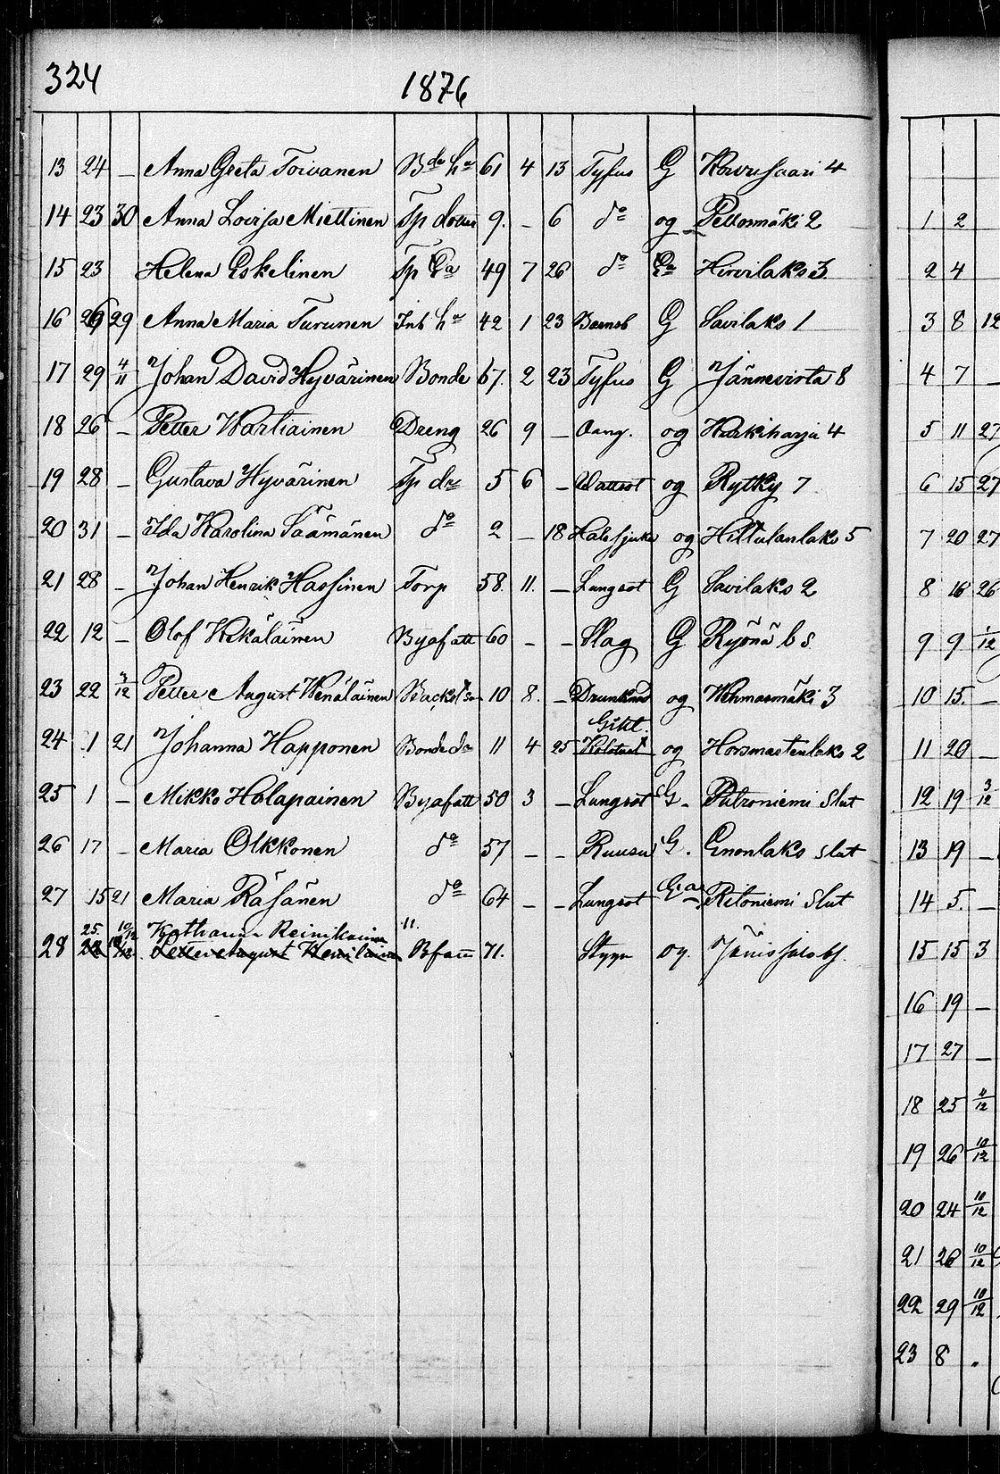 324
1876
13 24 – Anna Greta Toivanen Bde ha 61 4 13 Tyfus G Korvusaari 4
14 23 30 Anna Lovisa Miettinen Tp dotter 9. – 6 do og Pellosmäki 2
15 23 Helena Eskelinen Tp Ea 49 7 26 do Ea Hirvilaks 3
16 26 29 Anna Maria Turunen Inh ha 42 1 23 Barnsb G Savilaks 1
17 29 4/11 Johan David Hyvärinen Bonde 67. 2 23 Tyfus G Jännevirta 8
18 26 – Petter Wartiainen Dreng 26 9 – Oang. og Kurkiharju 4
19 28 – Gustava Hyvärinen Tp dr 5 6 – Wattsot og Rytky 7
20 31 – Ida Karolina Säämänen do 2 – 18 Halssjuka og Hiltulanlaks 5
21 28 – Johan Henrik Hassinen Torp 58. 11. – Lungsot G Savilaks 2
22 12 – Olof Kekäläinen Byafatt 60 – – Slag G Ryönä bs
23 22 4/12 Petter August Wenäläinen Backst Sn 10 8. – Drunknad og Wehmasmäki 3
24 1 21 Johanna Happonen Bonde dr 11 4 25 Gikt og Horsmastenlaks 2
25 1 – Mikko Holapainen Byafatt 50 3 – Lungsot G – Putroniemi Slut
26 17 – Maria Olkkonen do 57 – – Ruusu G. Enonlaks slut
27 15 21 Maria Räsänen do 64 – – Lungsot Ea Retoniemi Slut
25. 10/12 Katharina Reinikainen 11.
28 Bfatt 71. Stygn og. Jänissalo bf.
1 2
2 4
3 8 12
4 7 –
5 11 27
6 15 27
7 20 27
8 16 26
9 9 1/12
10 15. –
11 20 –
12 19 3/12
13 19 –
14 5. –
15 15 3
16 19 –
17 27 –
18 25 4/12
19 26 10/12
20 24 10/12
21 26 10/12
22 29 10/12
23 8 .